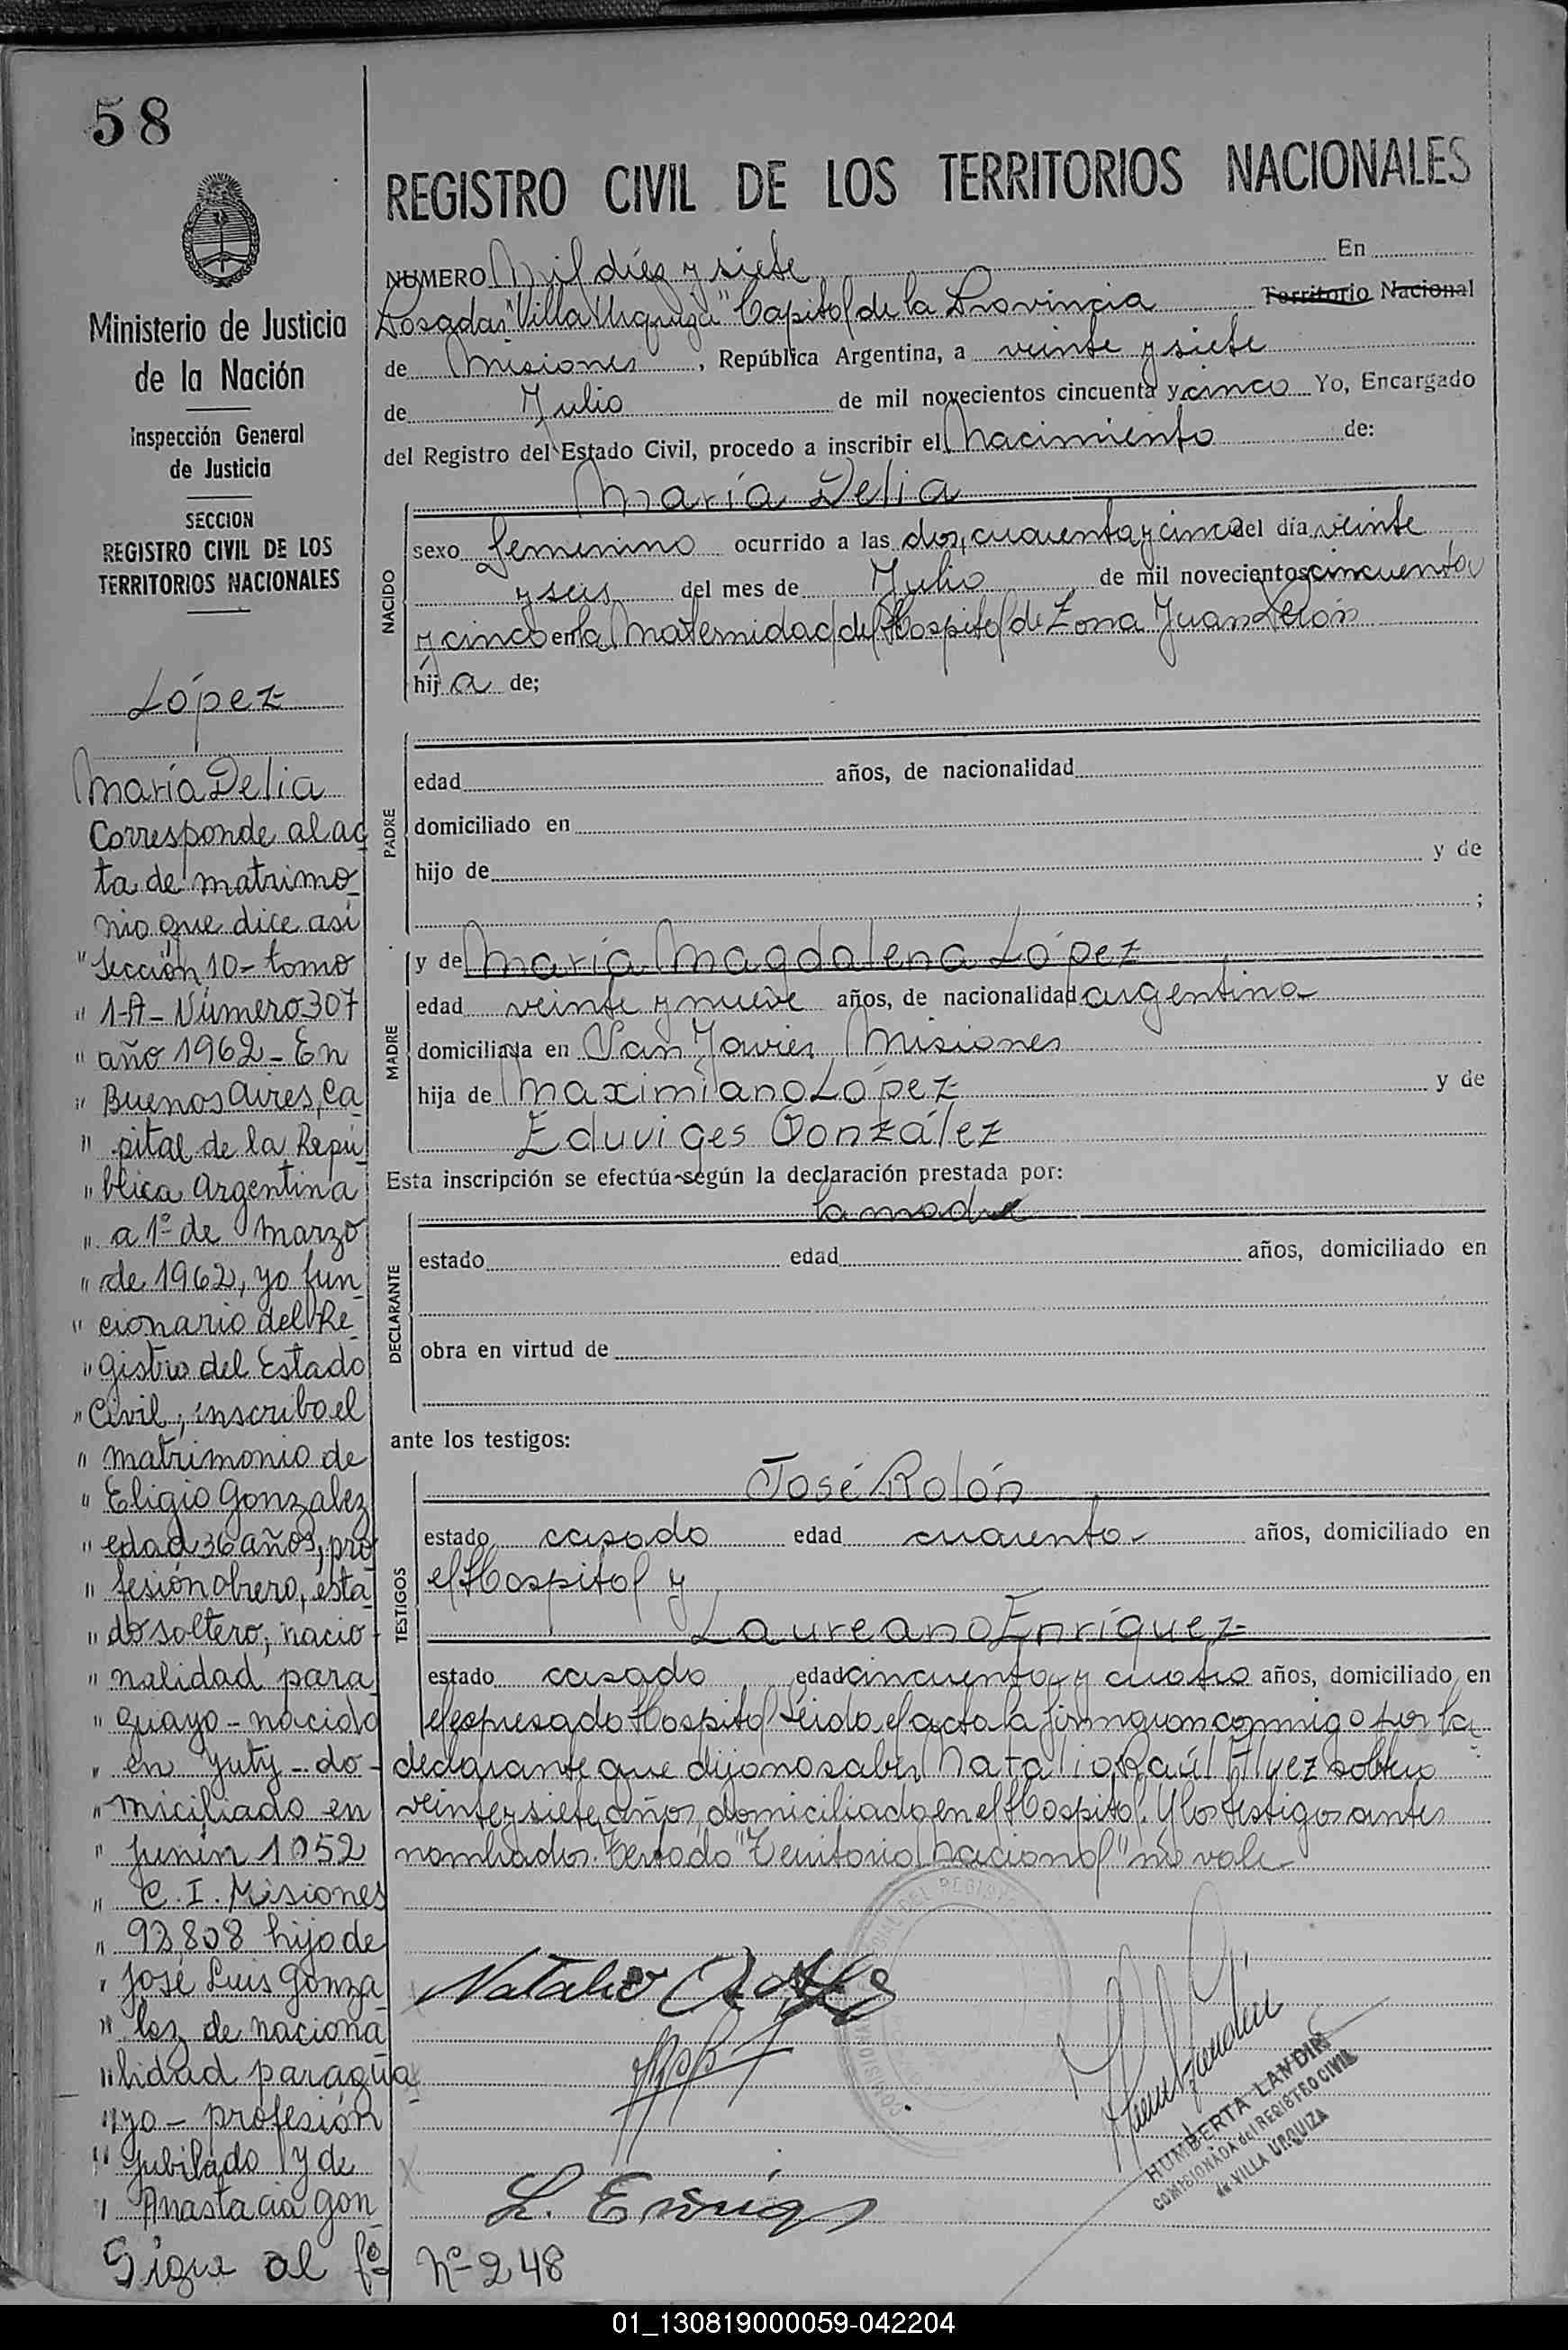 58
Ministerio de Justicia
de la Nación
Inspección General
de Justicia
SECCION
REGISTRO CIVIL DE LOS
TERRITORIOS NACIONALES
López
María Delia
Corresponde al ac
ta de matrimo
nio que dice así
"Sección 10- tomo
" 1-A- Número 307
" año 1962- En
" Buenos Aires, Ca
" pital de la Repú
" blica Argentina
" a 1º de Marzo
" de 1962, yo fun
" cionario del Re
" gistro del Estado
" Civil, inscribo el
" matrimonio de
" Eligio Gonzalez
" edad 36 años, pro
" fesión obrero, esta
" do soltero, nacio
" nalidad para
" guayo - nacido
" en Yuty - do-
" miciliado en
" Junín 1052
" C. I. Misiones
" 93,808 hijo de
" José Luis Gonza
" lez de naciona
" lidad paragua
" yo - profesión
" jubilado y de
" Anastacia Gon
Sigue al fº Nº 248
REGISTRO CIVIL DE LOS TERRITORIOS NACIONALES
NUMERO Mil diez y siete En
Posadas "Villa Urquiza" Capital de la Provincia Territorio Nacional
de Misiones, República Argentina, a veinte y siete
de Julio de mil novecientos cincuenta y cinco Yo, Encargado
del Registro del Estado Civil, procedo a inscribir el Nacimiento de:
María Delia
NACIDO
sexo femenino ocurrido a las dos, cuarenta y cinco del día veinte
y seis del mes de Julio de mil novecientos cincuenta
y cinco en la Maternidad del Hospital de Zona Juan Perón
hija de;
PADRE
edad años, de nacionalidad
domiciliado en
hijo de y de
;
MADRE
y de María Magdalena López
edad veinte y nueve años, de nacionalidad argentina
domiciliada en San Javier Misiones
hija de Maximiano López y de
Eduviges González
Esta inscripción se efectúa según la declaración prestada por:
la madre
DECLARANTE
estado edad años, domiciliado en
obra en virtud de
ante los testigos:
TESTIGOS
José Rolón
estado casado edad cuarenta años, domiciliado en
el Hospital y
Laureano Enríquez
estado casado edad cincuenta y cuatro años, domiciliado en
el expresado Hospital Leido el acta la firmaron conmigo por la
declarante que dijo no saber Natalio Raúl soltero
veinte y siete años, domiciliado en el Hospital. Y los testigos antes
nombrados. Testado "Territorio Nacional" no vale
Natalio
L. Enriq
HUMBERTA LANDIN
COMISIONADA del REGISTRO CIVIL
de VILLA URQUIZA
01_130819000059-042204